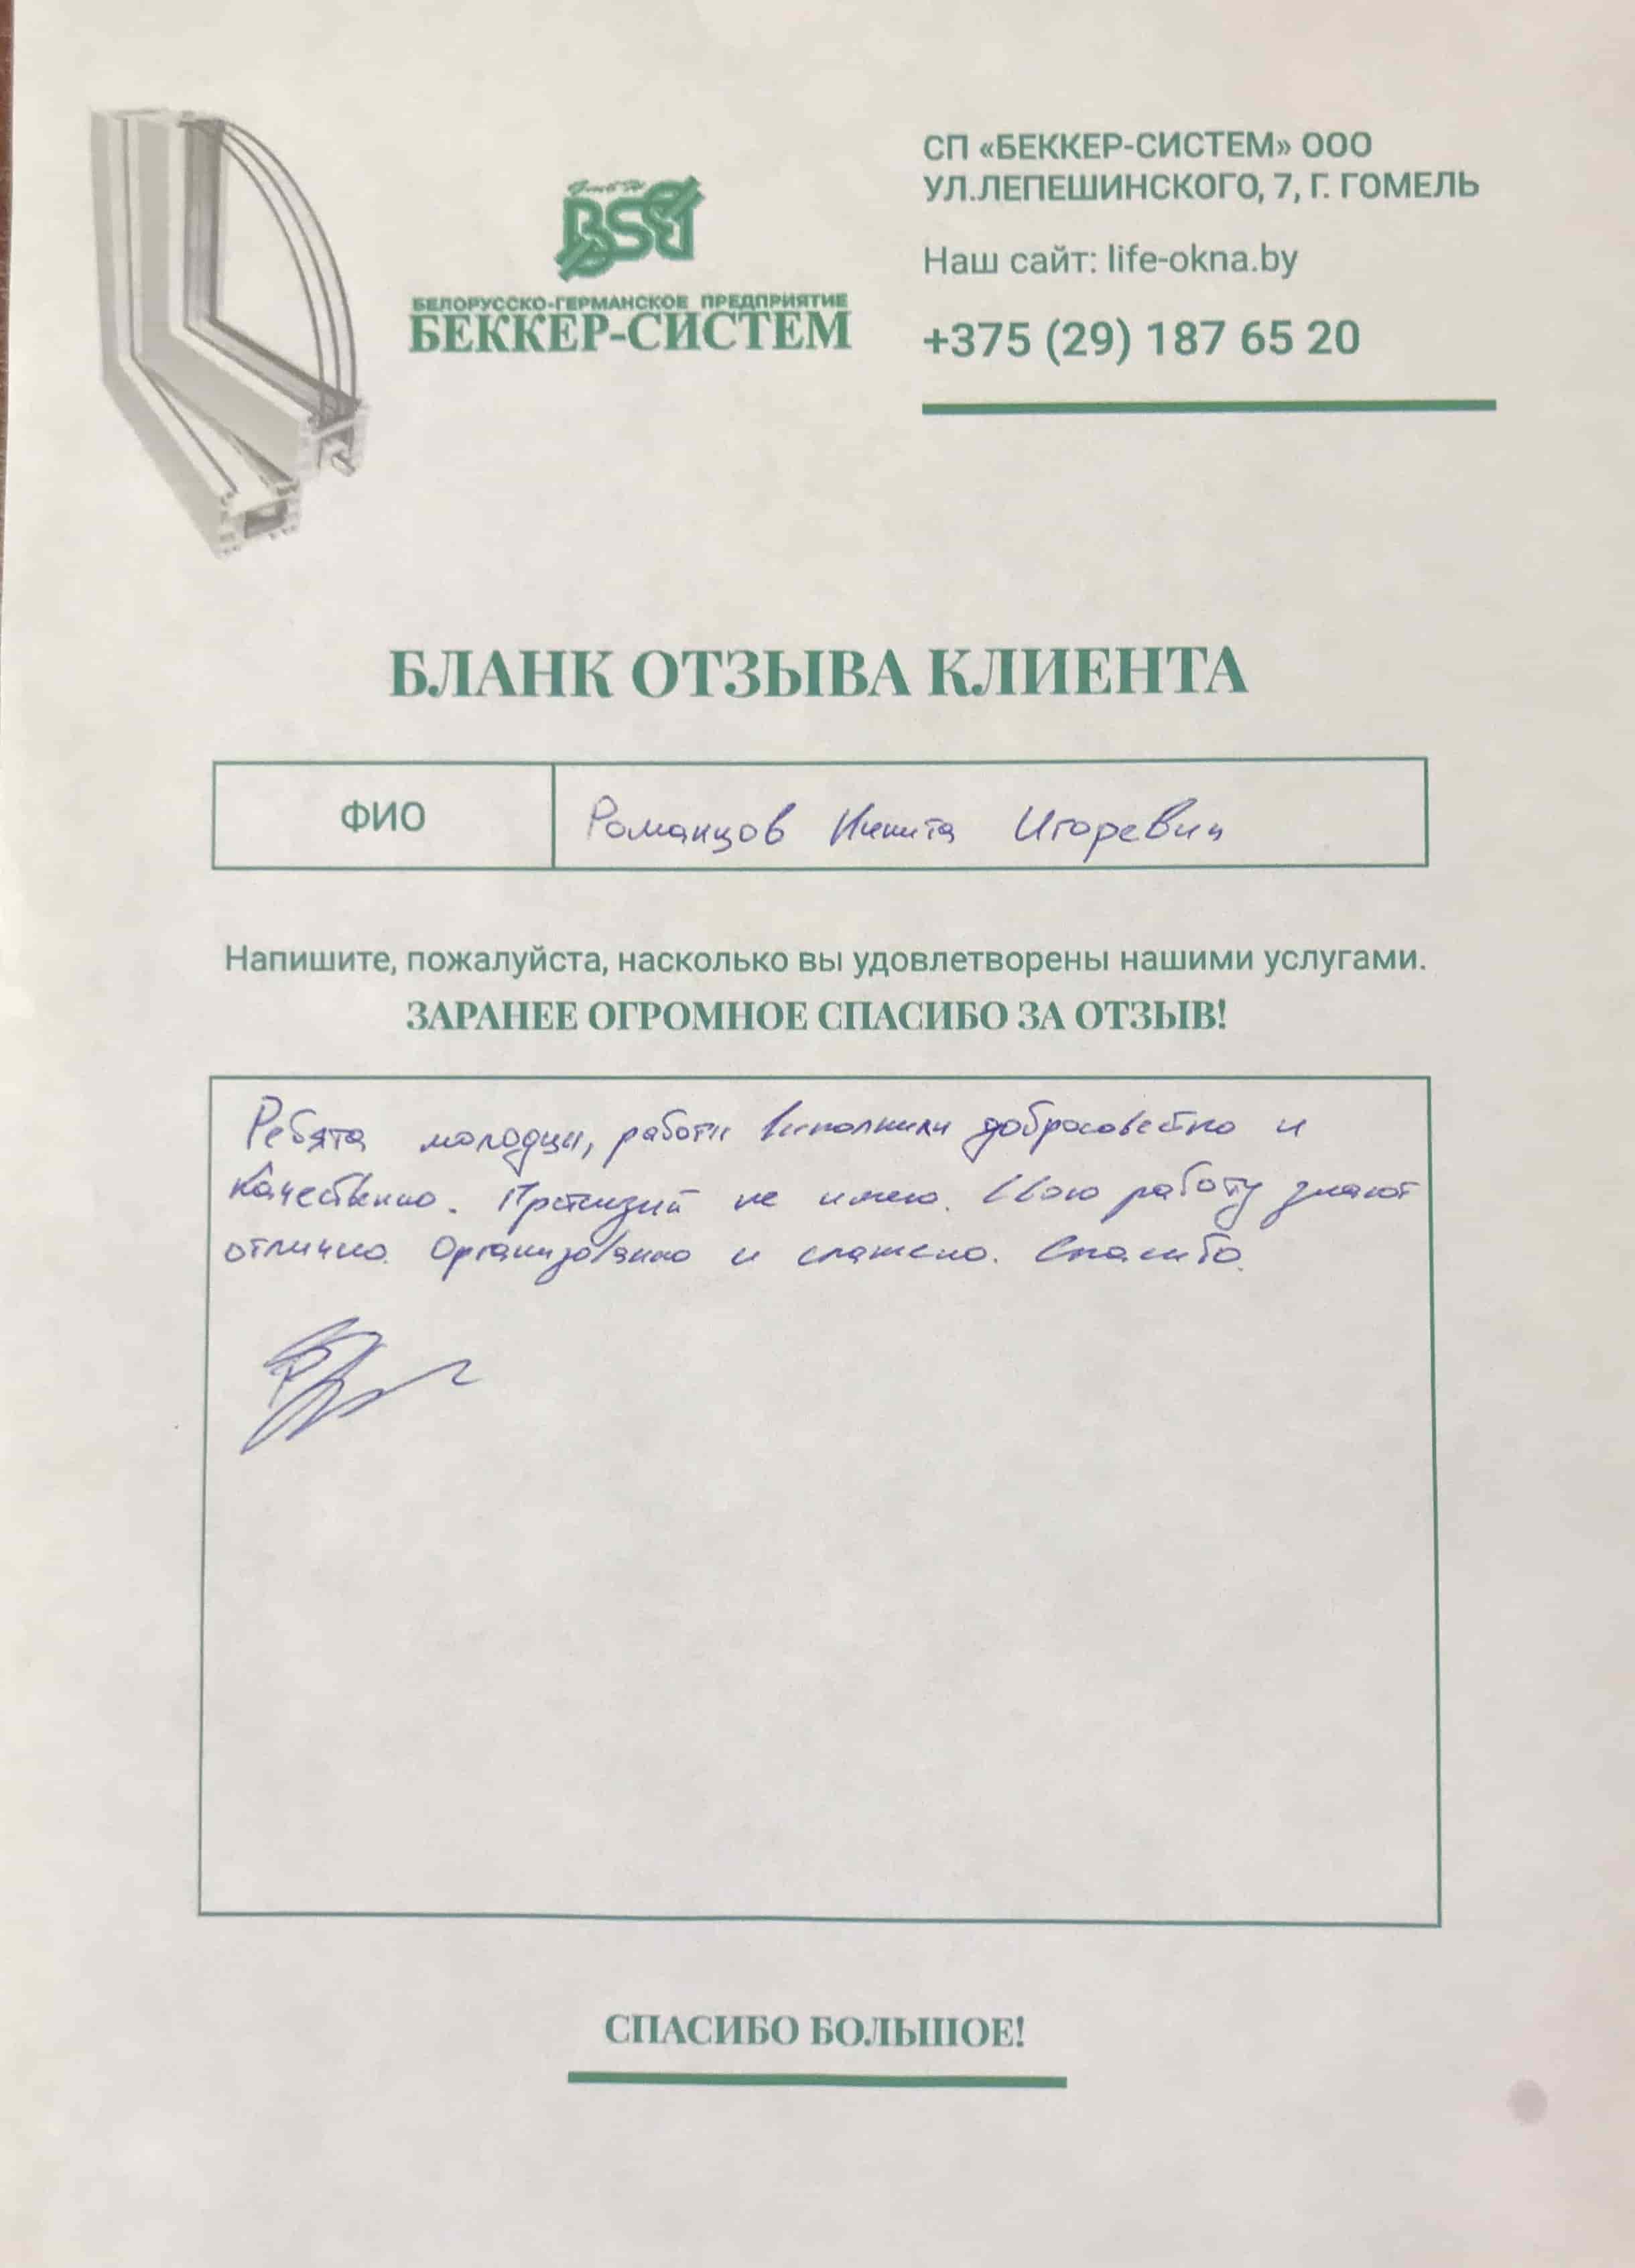 СП «БЕККЕР-СИСТЕМ» ООО
УЛ.ЛЕПЕШИНСКОГО, 7, Г. ГОМЕЛЬ
Наш сайт: life-okna.by
+375 (29) 187 65 20
BSB
БЕЛОРУССКО-ГЕРМАНСКОЕ ПРЕДПРИЯТИЕ
БЕККЕР-СИСТЕМ
БЛАНК ОТЗЫВА КЛИЕНТА
ФИО
Романцов Никита Игоревич
Напишите, пожалуйста, насколько вы удовлетворены нашими услугами.
ЗАРАНЕЕ ОГРОМНОЕ СПАСИБО ЗА ОТЗЫВ!
Ребята молодцы, работы выполнили добросовестно и
качественно. Притензий не имею. Свою работу знают
отлично. Организованно и слажено. Спасибо.
СПАСИБО БОЛЬШОЕ!